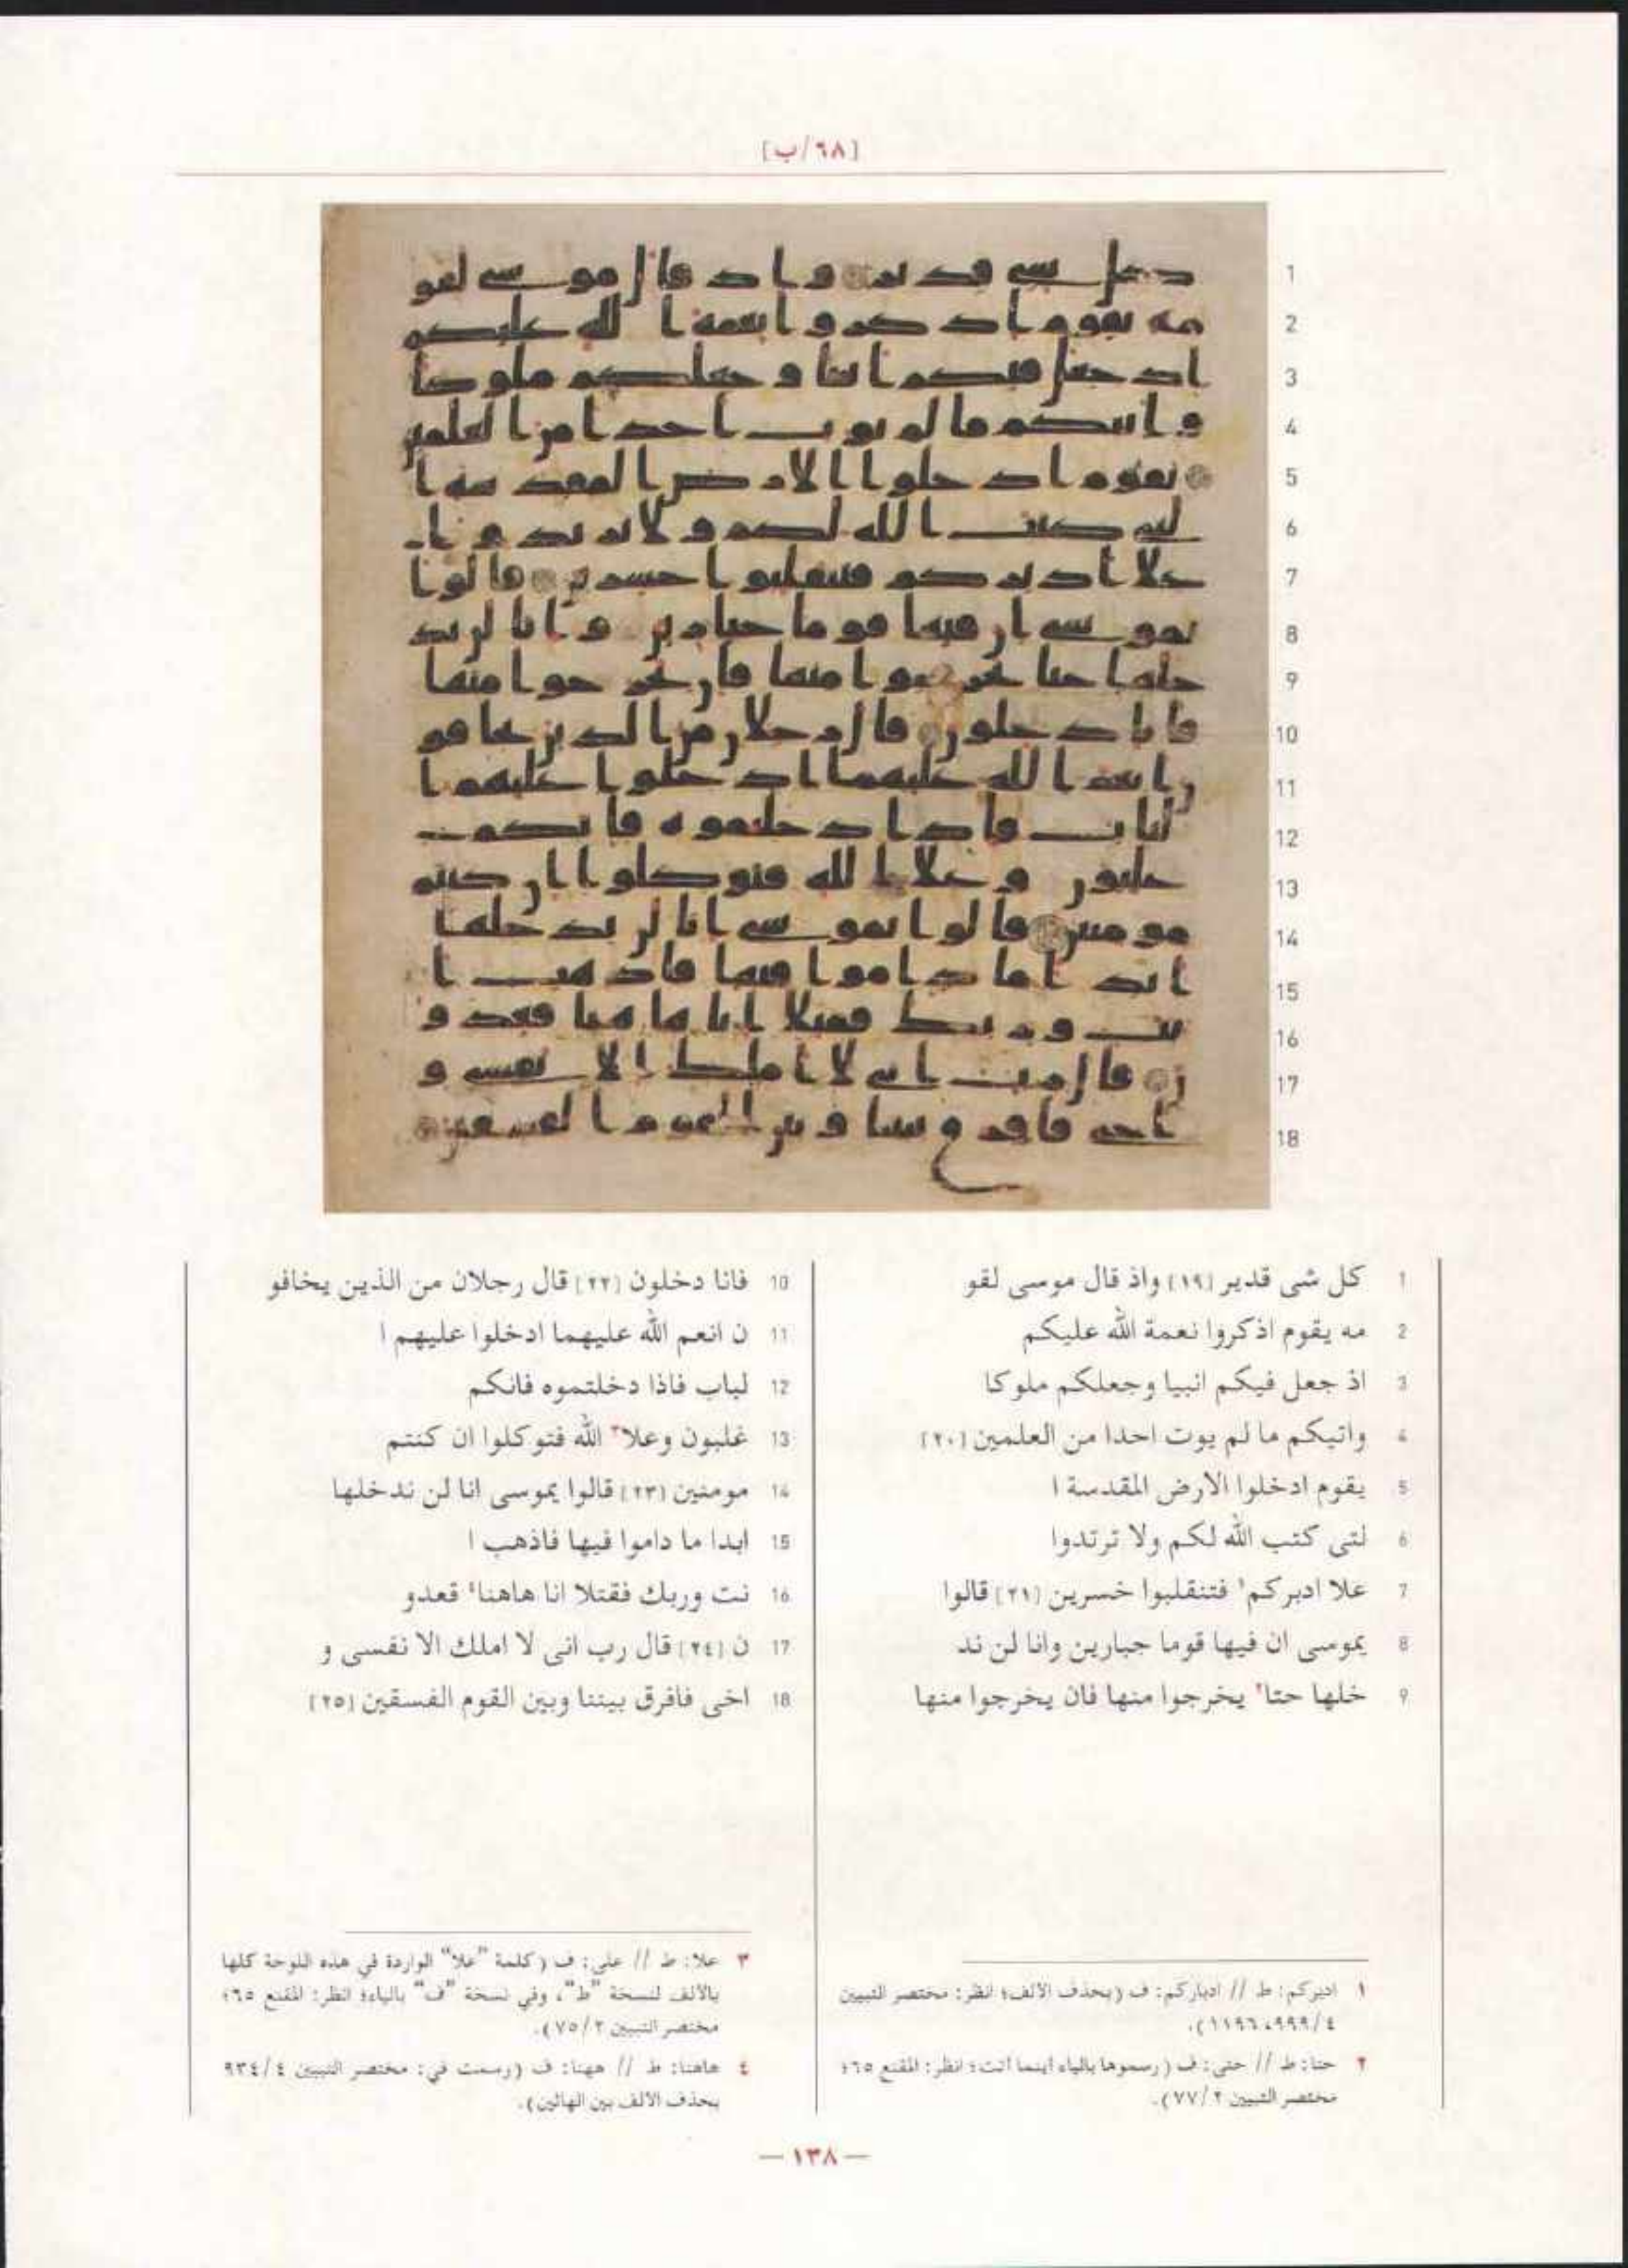 [٦٨/ب]
1 كل شى قدير [١٩] واذ قال موسى لقو
2 مه يقوم اذكروا نعمة الله عليكم
3 اذ جعل فيكم انبيا وجعلكم ملوكا
4 واتيكم ما لم يوت احدا من العلمين [٢٠]
5 يقوم ادخلوا الارض المقدسة ا
6 لتى كتب الله لكم ولا ترتدوا
7 علا ادبركم١ فتنقلبوا خسرين [٢١] قالوا
8 يموسى ان فيها قوما جبارين وانا لن ند
9 خلها حتا٢ يخرجوا منها فان يخرجوا منها
10 فانا دخلون [٢٢] قال رجلان من الذين يخافو
11 ن انعم الله عليهما ادخلوا عليهم ا
12 لباب فاذا دخلتموه فانكم
13 غلبون وعلا٣ الله فتوكلوا ان كنتم
14 مومنين [٢٣] قالوا يموسى انا لن ندخلها
15 ابدا ما داموا فيها فاذهب ا
16 نت وربك فقتلا انا هاهنا٤ قعدو
17 ن [٢٤] قال رب انى لا املك الا نفسى و
18 اخى فافرق بيننا وبين القوم الفسقين [٢٥]
١ ادبركم: ط // ادباركم: ف (بحذف الألف؛ انظر: مختصر التبيين
٤/٩٩٩، ١١٩٦).
٢ حتا: ط // حتى: ف (رسموها بالياء أينما أتت؛ انظر: المقنع ٦٥؛
مختصر التبيين ٢/٧٧).
٣ علا: ط // على: ف (كلمة "علا" الواردة في هذه اللوحة كلها
بالألف لنسخة "ط"، وفي نسخة "ف" بالياء؛ انظر: المقنع ٦٥؛
مختصر التبيين ٢/٧٥).
٤ هاهنا: ط // ههنا: ف (رسمت في: مختصر التبيين ٤/٩٣٤
بحذف الألف بين الهائين).
— ١٣٨ —